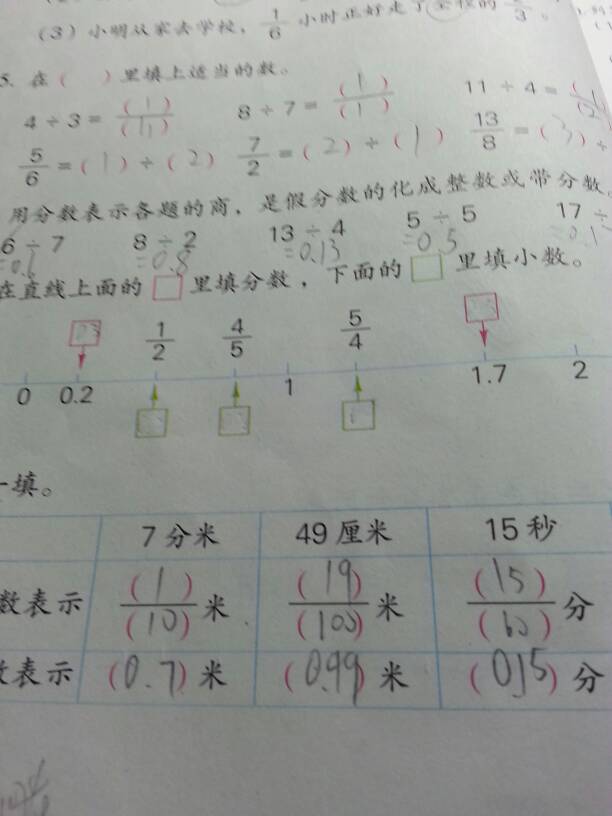 (3) 小明从家去学校，1/6 小时正好走了全程的 /3。
5. 在( )里填上适当的数。
4 ÷ 3 = (1)/(11) 8 ÷ 7 = (1)/(1) 11 ÷ 4 = (1/(2
5/6 = (1) ÷ (2) 7/2 = (2) ÷ (1) 13/8 = (3) ÷
用分数表示各题的商，是假分数的化成整数或带分数
6 ÷ 7 8 ÷ 2 13 ÷ 4 5 ÷ 5 17 ÷
=0.6 =0.8 =0.13 =0.5 =0.1
在直线上面的□里填分数，下面的□里填小数。
1/2 4/5 5/4
0 0.2 1 1.7 2
一填。
7分米 49厘米 15秒
数表示 (1)/(10)米 (19)/(100)米 (15)/(60)分
数表示 (0.7)米 (0.99)米 (0.15)分